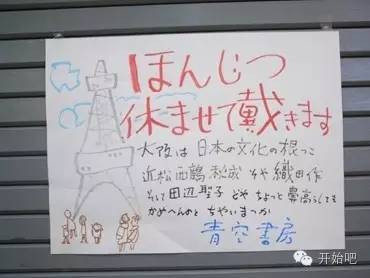 ほんじつ
休ませて戴きます
大阪は日本の文化の根っこ
近松西鶴秋成 ちや 織田作
そして田辺聖子 どや ちょっと鼻高うしても
かめへんのとちゃいまっか
青空書房
开始吧